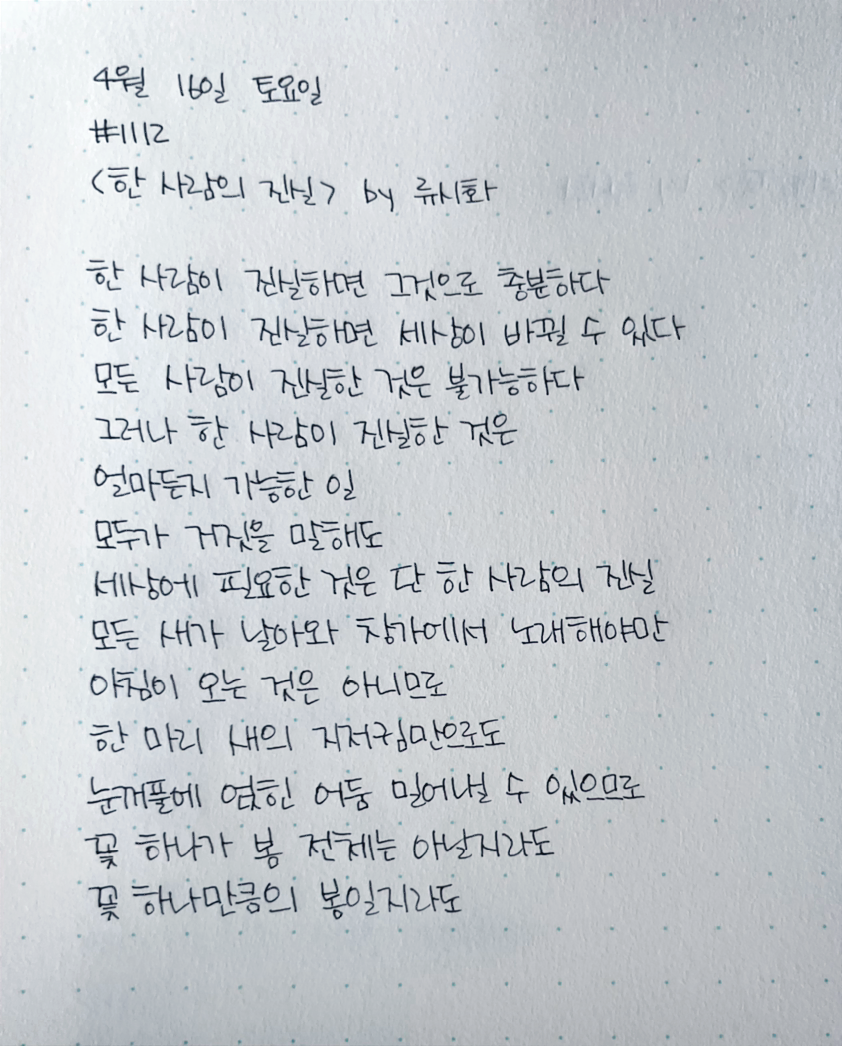 4월 16일 토요일
#1112
<한 사람의 진실> by 류시화
한 사람이 진실하면 그것으로 충분하다
한 사람이 진실하면 세상이 바뀔 수 있다
모든 사람이 진실한 것은 불가능하다
그러나 한 사람이 진실한 것은
얼마든지 가능한 일
모두가 거짓을 말해도
세상에 필요한 것은 단 한 사람의 진실
모든 새가 날아와 창가에서 노래해야만
아침이 오는 것은 아니므로
한 마리 새의 지저귐만으로도
눈꺼풀에 얹힌 어둠 밀어낼 수 있으므로
꽃 하나가 봄 전체는 아닐지라도
꽃 하나만큼의 봄일지라도